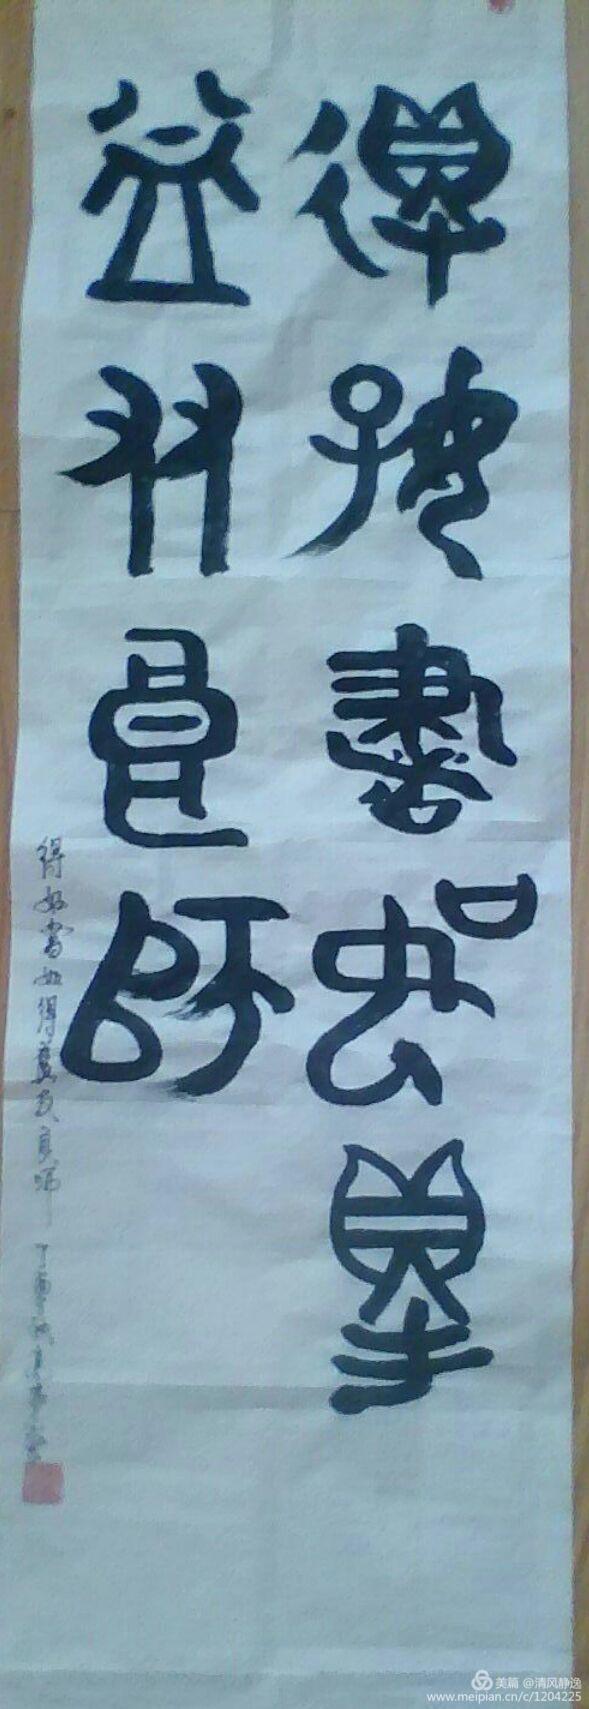 得好書如得
益友良師
得好書如得益友良師
丁酉
美篇 @清风静逸
www.meipian.cn/c/1204225